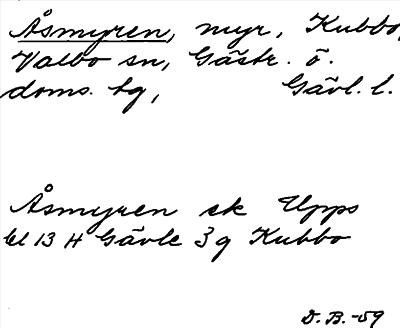 Åsmyren, myr, Kubbo,
Valbo sn, Gästr. ö.
doms. hg, Gävl. l.
Åsmyren ek Upps
bl 13 H Gävle 3 g Kubbo
D. B. -59